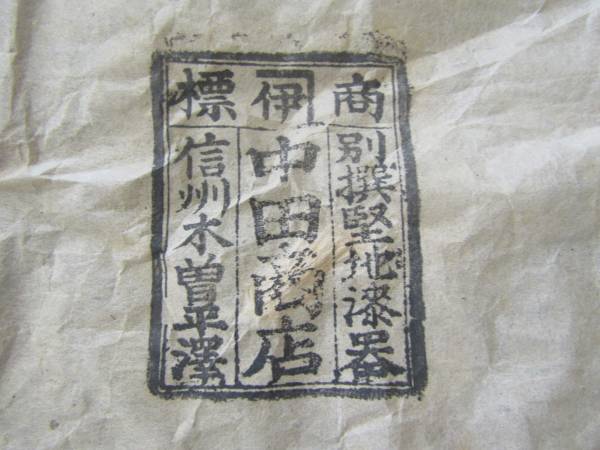 商伊標
別撰堅地漆器
中田商店
信州木曽平澤